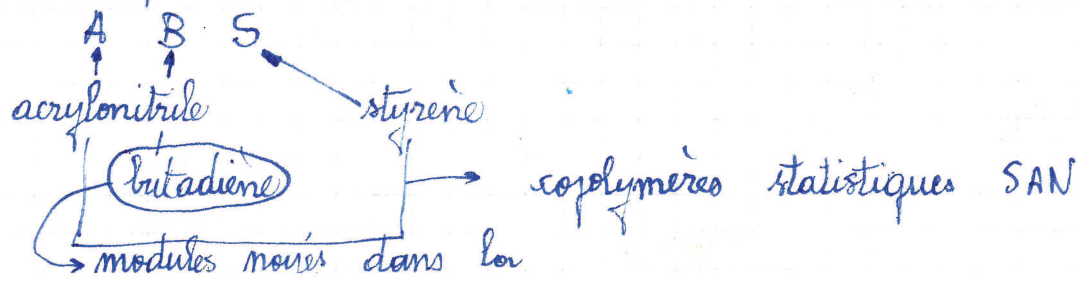 A B S
acrylonitrile styrène
butadiène copolymères statistiques SAN
modules noyés dans la